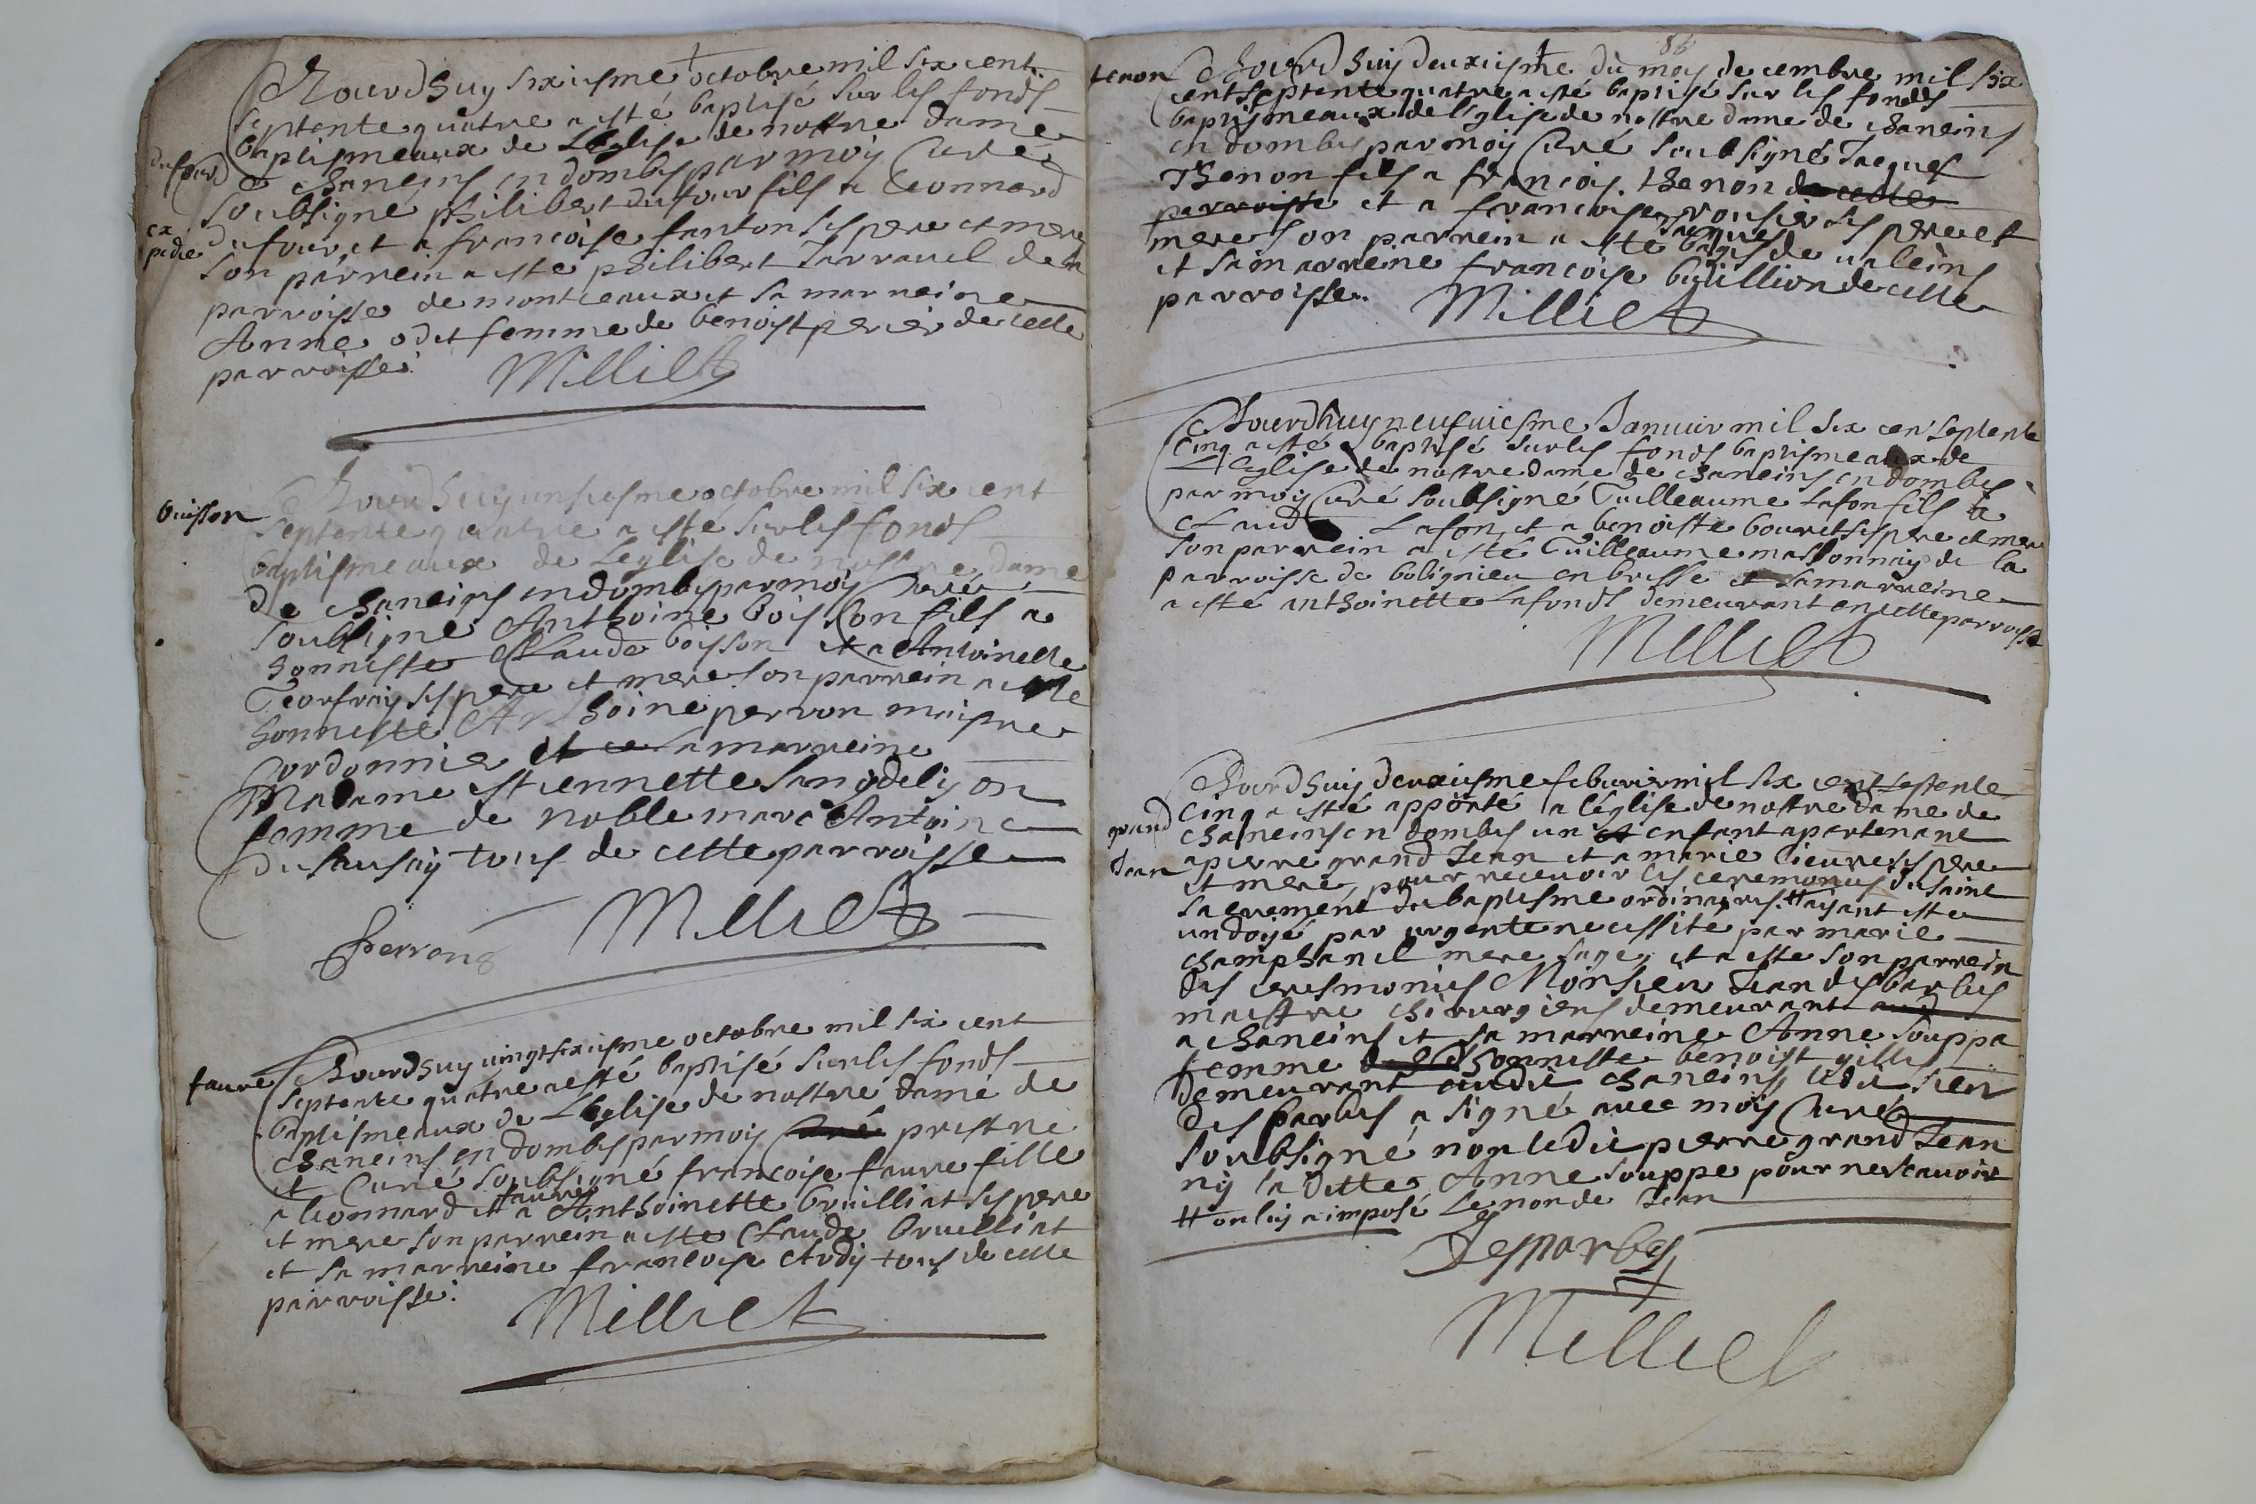 Aujourdhuy sixiesme octobre mil six cent
septente quatre a esté baptisé sur les fonds
baptismeaux de Leglise de nostre dame
dufour
de chaneins en dombes par moy Curé
soubsigné philibert dufour fils a Leonnard
ex
dufour et a francoise fanton ses pere et mere
pedie
son parrein a este philibert Jarravel de la
parroisse de montceaux et sa marreine
Anne odet femme de benoist perier de cette
parroisse.
Milliet
buisson
Aujourdhuy unsiesme octobre mil six cent
septente quatre a esté sur les fonds
baptismeaux de Leglise de nostre dame
de chaneins en dombes par moy Curé
soubsigné Anthoine boisson fils a
honneste Claude boisson et a Antoinette
Geoffray ses pere et mere son parrein a esté
honneste Anthoine perron maistre
Cordonnier et sa marreine
Madame estiennette sangdelyon
femme de noble marc Antoine
du sausay tous de cette parroisse
perron Milliet
faure
Aujourdhuy vingtsixiesme octobre mil six cent
septente quatre a esté baptisé sur les fonds
baptismeaux de Leglise de nostre dame de
chaneins en dombes par moy curé prestre
et Curé soubsigné francoise faure fille
faure
a leonnard et a Anthoinette bruilliat ses pere
et mere son parrein a este Claude bruelliat
et sa marreine francoise Ardy tous de cette
parroisse.
Milliet
85
tenon
Aujourdhuy deuxiesme du moy decembre mil six
cent septente quatre a esté baptisé sur les fonds
baptismeaux de leglise de nostre dame de chaneins
en dombes par moy Curé soubsigné Jacques
Thenon fils a francois thenon de cette
parroisse et a francoise rousier ses pere et
mere son parrein a este Jacques de valeins
et sa marreine francoise butillion de cette
parroisse.
Milliet
Aujourdhuy neufviesme Janvier mil six cent septente
Cinq a esté baptisé sur les fonds baptismeaux de
Leglise de nostre dame de chaneins en dombes
par moy Curé soubsigné Guilleaume Lafon fils a
Claude Lafon et a benoiste bouret ses pere et mere
son parrein a esté Guilleaume massonnay de la
parroisse de bolignieu en bresse et sa marreine
a este anthoinette Lafonds demeurant en cette parroisse
Milliet
Aujourdhuy deuxiesme febvrier mil six cent septente
grand
Cinq a esté apporté a leglise de nostre dame de
chaneins en dombes un enfant apartenant
Jean
a pierre grand Jean et a marie lieure ses pere
et mere, pour recevoir les ceremonies du saint
sacrement du baptisme ordinaires. # ayant este
undoyé par urgente necessite par marie
champhanel mere sage, et a este son parrein
des ceresmonies Monsieur Jean desparbes
maistre chirurgiens demeurant aud
a chaneins et sa marreine Anne souppa
femme de honneste benoist gilles
demeurant audit chaneins ledit sieur
desparbes a signé avec moy Curé
soubsigné non ledit pierre grand Jean
ny la ditte Anne souppe pour ne scavoir
# on luy a imposé le nom de Jean
Desparbes
Milliet